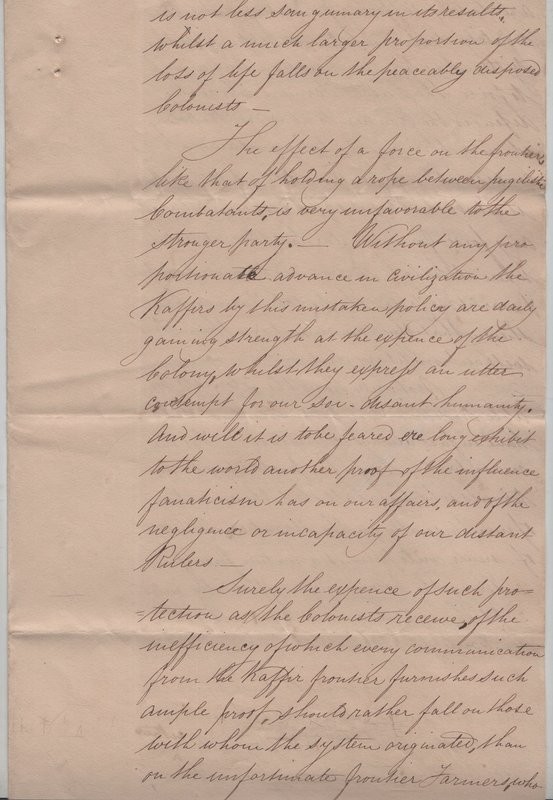 is not less sanguinary in its results,
whilst a much larger proportion of the
loss of life falls on the peaceably disposed
Colonists —
The effect of a force on the frontier,
like that of holding a rope between pugilistic
Combatants, is very unfavorable to the
stronger party. — Without any pro
portionate advance in civilization the
Kaffirs by this mistaken policy are daily
gaining strength at the expence of the
Colony, whilst they express an utter
contempt for our soi-disant humanity.
And will it is to be feared ere long exhibit
to the world another proof of the influence
fanaticism has on our affairs, and of the
negligence or incapacity of our distant
Rulers —
Surely the expence of such pro=
=tection as the Colonists receive, of the
inefficiency of which every communication
from the Kaffir frontier furnishes such
ample proof, should rather fall on those
with whom the system originated, than
on the unfortunate frontier Farmers, who